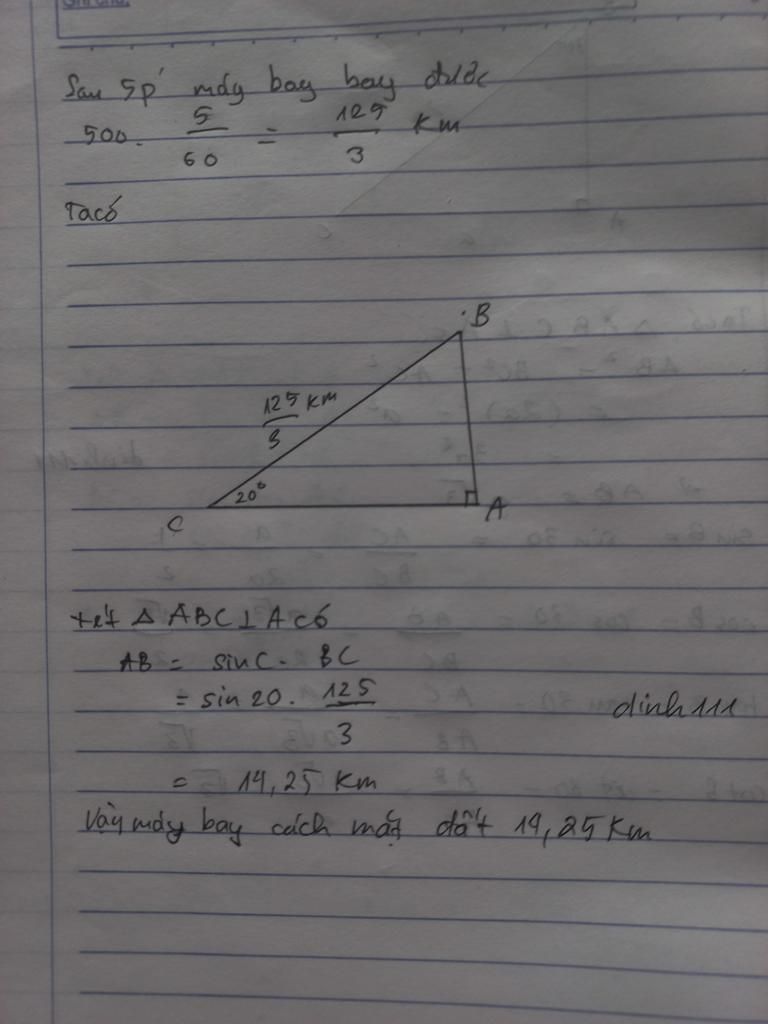 Sau 5p' máy bay bay được
500. 5/60 = 125/3 Km
Ta có
B
125/3 Km
20°
C
A
xét Δ ABC ⊥ A có
AB = sin C . BC
= sin 20 . 125/3
dinh111
= 14,25 Km
Vậy máy bay cách mặt đất 14,25 Km